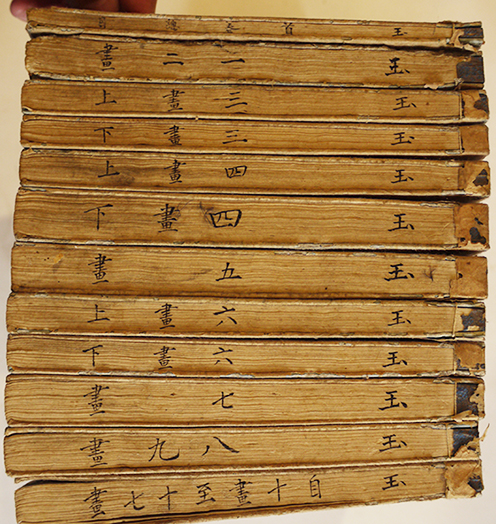 玉 首
玉 一二畫
玉 三畫上
玉 三畫下
玉 四畫上
玉 四畫下
玉 五畫
玉 六畫上
玉 六畫下
玉 七畫
玉 八九畫
玉 自十畫至十七畫